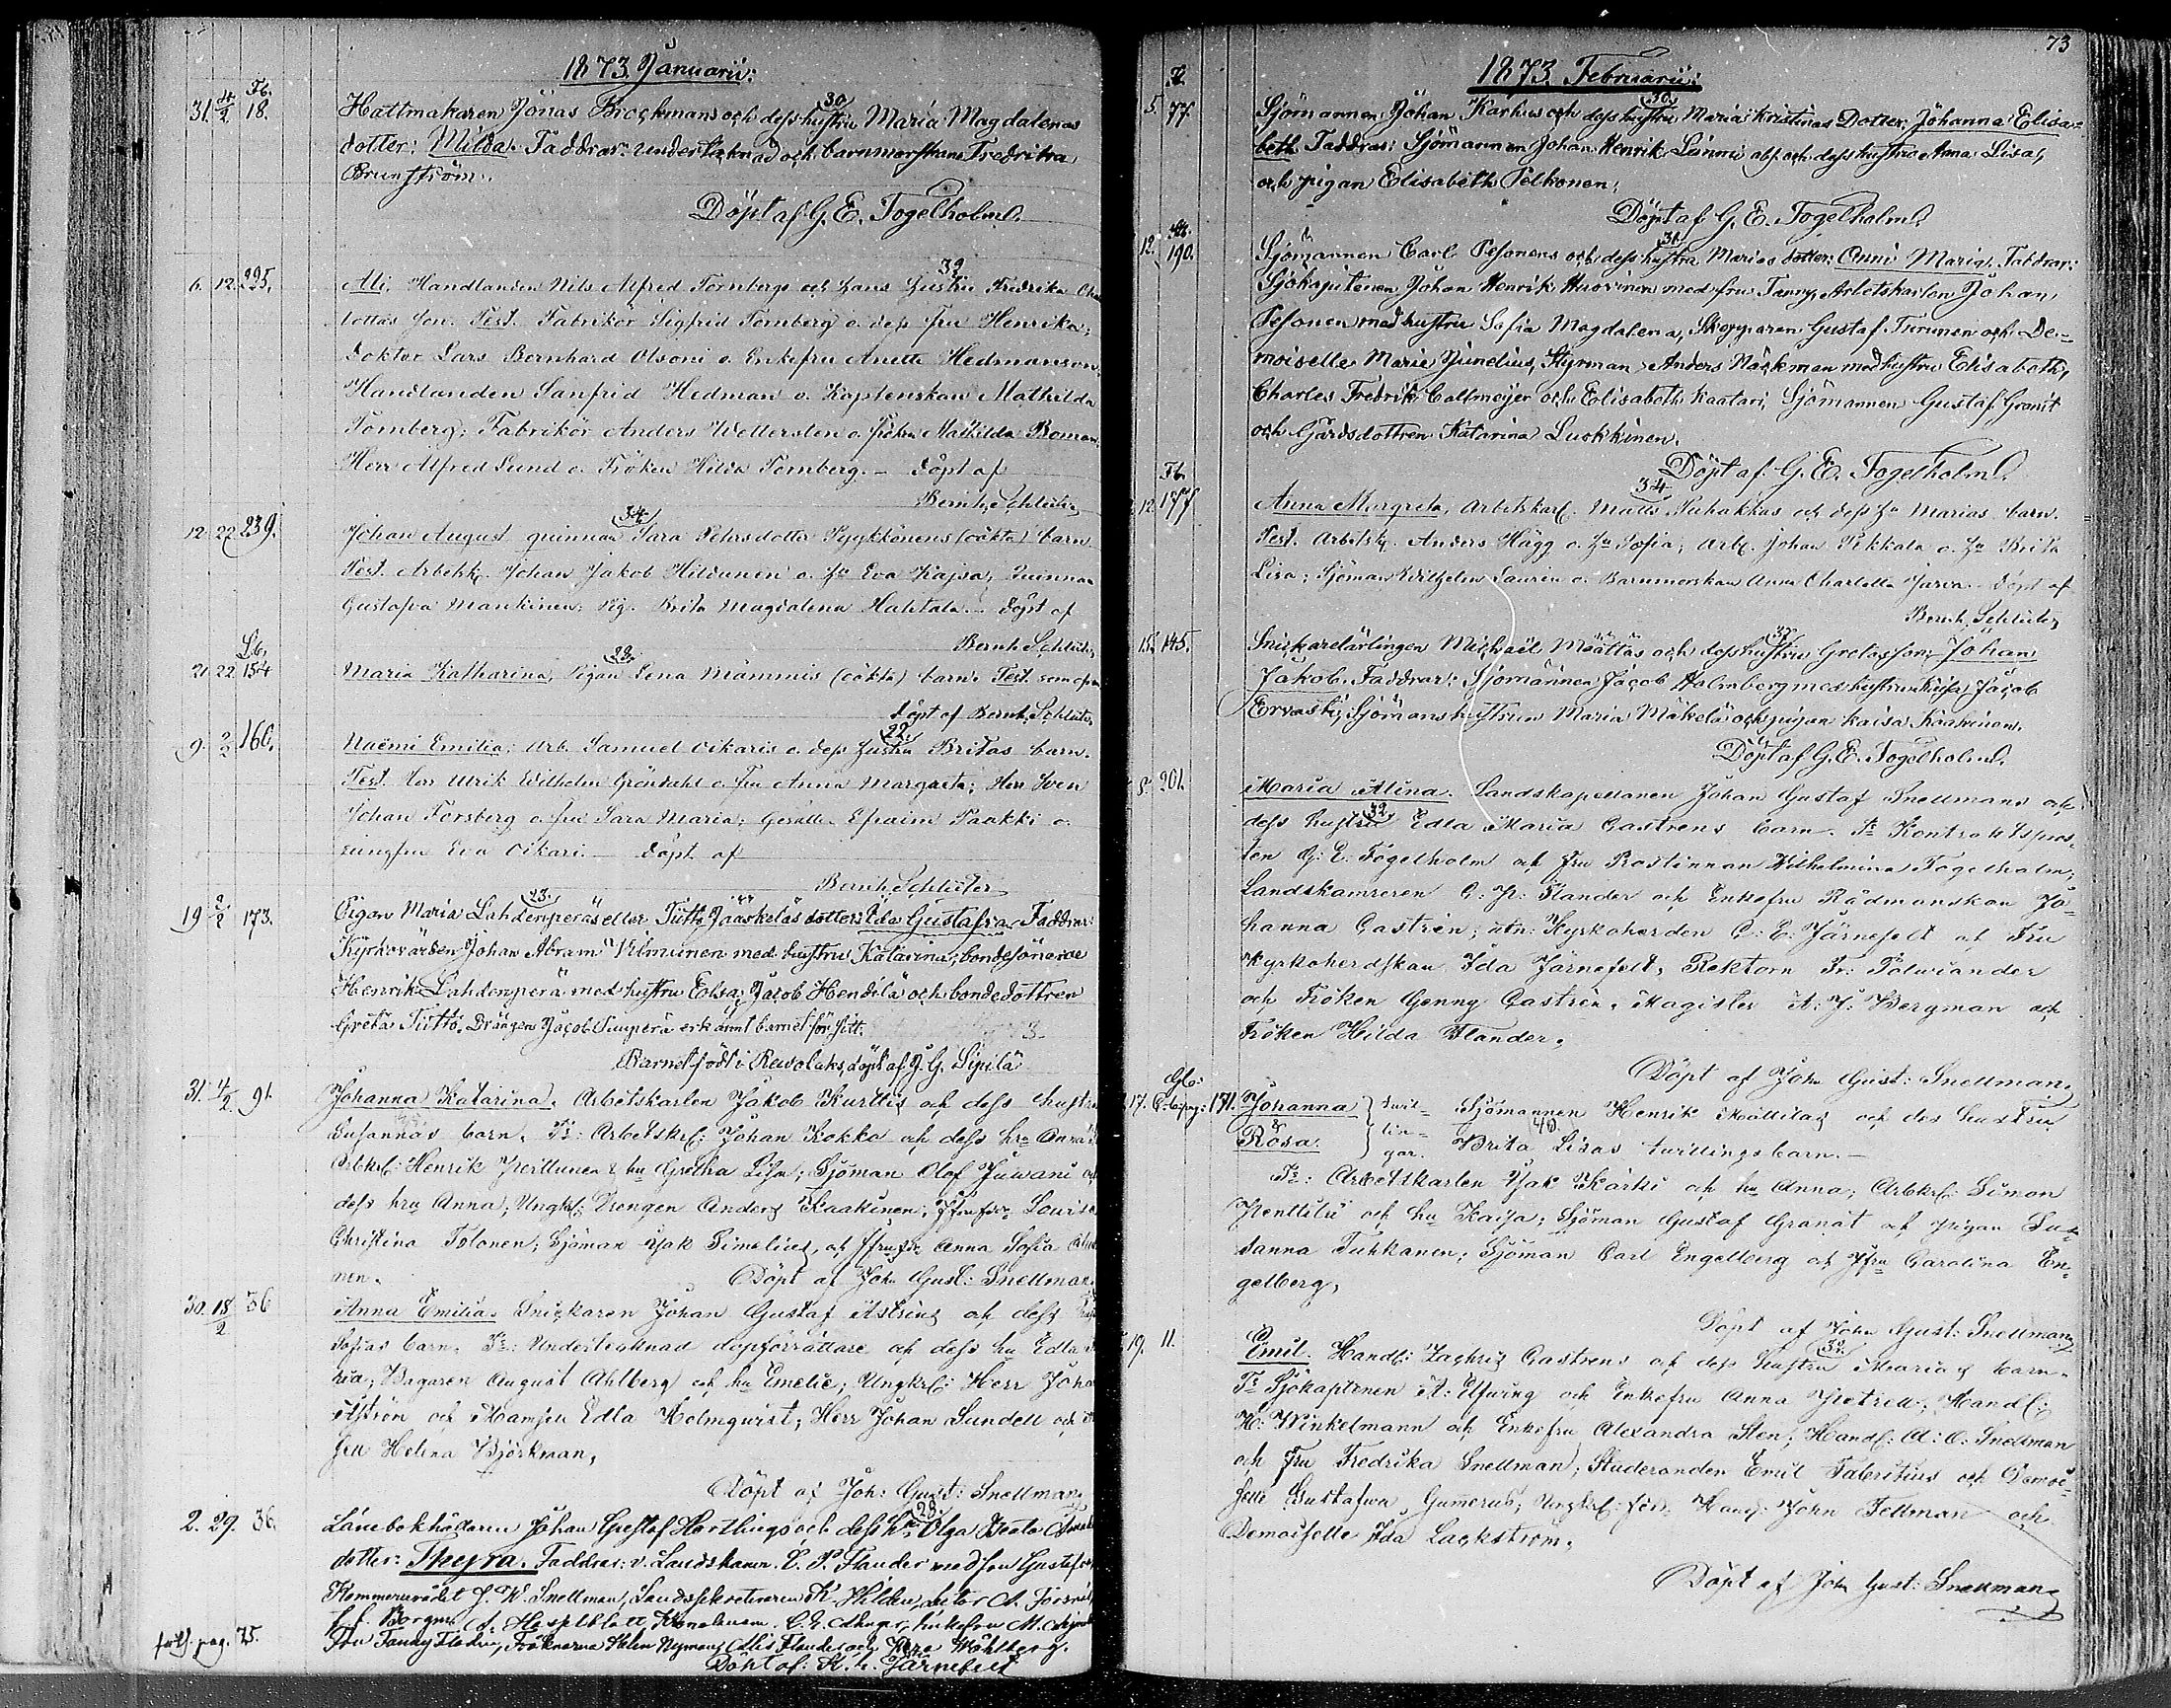 1873 Januarii:
Fb.
31. 4/2 18. Hattmakaren Jonas Brockmans och dess hustru 30 Maria Magdalenas
dotter: Milda. Faddrar: undertecknad och barnmorskan Fredrika
Brunström.
Döpt af G. E. Fogelholm.
6. 12. 295. Ali, Handlanden Nils Alfred Tornbergs och hans hustru 39 Fredrika
lottas son. Test. Fabrikör Sigfrid Tornberg o. dess fru Henrika;
Doktor Lars Bernhard Olsoni o. Enkefru Anette Hedmanson;
Handlanden Sanfrid Hedman o. Kaptenskan Mathilda
Tornberg; Fabrikör Anders Wettersten o. Fröken Mathilda Boman;
Herr Alfred Lund o. Fröken Hilda Tornberg. – Döpt af
Bernh. Schlüter
12. 22 239. Johan August, quinnan 34 Sara Petersdotter Pyykkönens (oäkta) barn.
Test. Arbetsk. Johan Jakob Hildunen o. h. Eva Kajsa; Quinnan
Gustafva Mankinen; Pig. Brita Magdalena Hahtala. – Döpt af
Bernh. Schlüter
Lb.
21 22 154 Maria Katharina, Pigan 28 Lena Mämmis (oäkta) barn. Test. som ofvan
Döpt af Bernh. Schlüter
9. 2/2 166. Naëmi Emilia; Arb. Samuel Oikaris o. dess hustru 22 Britas barn.
Test. Herr Ulrik Wilhelm Gröndahl o. fru Anna Margreta; Herr Sven
Johan Forsberg o. fru Sara Maria; Gesälle Efraim Paakki o.
jungfru Eva Oikari. – Döpt af
Bernh. Schlüter
19 2/2 173. Pigan Maria 23 Lahdenperäs eller Tuttu Jääskeläs dotter: Ida Gustafva. Faddrar:
Kyrkovärden Johan Abram Vilmunen med hustru Katarina; bondesönerne
Henrik Lahdenperä med hustru Elsa, Jacob Hendilä och bondedottren
Greta Tuttu. Drängen Jacob Simperä erkännt barnet för sitt.
Barnet födt i Rewolaks, döpt af J. G. Sipilä
31. 4/2. 91. Johanna Katarina, Arbetskarlen Jakob Kurttis och dess hustru
Susannas barn. Fr: Arbetskrl: Johan Kokko och dess hru Anna;
Arbkrl: Henrik Perttunen & hu Gretha Lisa; Sjöman Olof Juwani och
dess hru Anna; Ungkl: Drengen Anders Kaakinen, Lovisa
Christina Tolonen; Sjöman Isak Simelius, och Anna Sofia
nen.
Döpt af Joh. Gust: Snellman.
30. 18/2 36 Anna Emilia. Snickaren Johan Gustaf Åströms och dess
Sofias barn. Fr: Undertecknad dopförrättare och dess hu Edla
ria; Bagaren August Ahlberg och hu Emelie; Ungkrl: Herr Johan
Åström och Mamsell Edla Holmqvist; Herr Johan Sundell och
sell Helena Björkman.
Döpt af Joh: Gust: Snellman.
2. 29. 36. Länebokhållaren Johan Gustaf Hartlings och dess h. 28 Olga Beata
dotter: Thyra. Faddrar: v. Landskamr. C. P. Flander med fru Gustafva
Kommerserådet J. W. Snellman, Landssekreteraren K. Hildén,
Fru Fanny Flander, Fröknerna Helen Nyman, Alis Flander och Wåhlberg.
forts. pag. 75.
Döpt af: Järnefelt
73
1873. Februarii:
Fb.
5. 77. Sjömannen Johan Karhus och dess hustru 30 Maria Kristinas Dotter: Johanna Elisa=
beth. Faddrar: Sjömannen Johan Henrik Lummi och dess hustru Anna Lisa,
och pigan Elisabeth Pelkonen.
Döpt af G. E. Fogelholm.
12. 190. Sjömannen Carl Pesonens och dess hustru 31 Marias dotter: Anni Maria. Faddrar:
Sjökaptenen Johan Henrik Huovinen med fru Fanny, Arbetskarlen Johan
Pesonen med hustru Sofia Magdalena, Skepparen Gustaf Turunen och De=
moiselle Maria Junelius, Styrman Anders Näckman med hustru Elisabeth,
Charles Fredrik Callmeijer och Elisabeth Kaatari, Sjömannen Gustaf Granit
och Gårdsdottren Katarina Luokkinen.
Döpt af G. E. Fogelholm.
Fb.
12 177 Anna Margreta, Arbetskarl. Matts 34 Puhakkas och dess hu Marias barn.
Test. Arbetsk. Anders Hägg o. hu Sofia; Arb. Johan Pekkala o. hu Brita
Lisa; Sjöman Wilhelm Saurén o. Barnmorskan Anna Charlotta Jarva. – Döpt af
Bernh. Schlüter
15. 145. Snickarelärlingen Michaël Määttäs och dess hustru Gretas son: Johan
Jakob. Faddrar: Sjömannen Jacob Holmberg med hustru Kaisa, Jacob
Ervasti, Sjömanshustrun Maria Mäkelä och pigan Kaisa Kaakinen.
Döpt af G. E. Fogelholm.
8. 201. Maria Alina. Landskapellanen Johan Gustaf Snellmans och
dess hustru 32 Edla Maria Castréns barn. Fr Kontraktspros=
ten G. E. Fogelholm och fru Prostinnan Wilhelmina Fogelholm;
Landskamreren C. P. Flander och Enkefru Rådmanskan Jo=
hanna Castrén; Kyrkoherden C. E. Järnefelt och Fru
Kyrkoherdskan Ida Järnefelt, Rektorn Fr: Pölwiander
och Fröken Genny Castrén, Magister A: J: Bergman och
Fröken Hilda Flander.
Döpt af Joh. Gust: Snellman.
17. 171. Johanna & Rosa. } twil=lin=gar. Sjömannen Henrik Mattilas och des hustru
40 Brita Lisas twillingsbarn. –
Fr: Arbetskarlen Isak Karhi och hu Anna; Arbkrl: Simon
Penttilä och hu Kaisa; Sjöman Gustaf Granat och pigan Su=
sanna Tuhkanen; Sjöman Carl Engelberg och Jfru Carolina En=
gelberg.
Döpt af John Gust: Snellman.
19. 11. Emil. Handl: Zachris Castréns och dess hustru Marias barn.
Fr Sjökaptenen A: Elfving och Enkefru Anna Petrell, Handl:
H: Winkelmann och Enkefru Alexandra Sten; Handl: A: O: Snellman
och Fru Fredrika Snellman; Studeranden Emil Fabritius och Demoi=
selle Gustafwa Gumerus; Ungkrl: John Fellman och
Demoiselle Ida Lackström.
Döpt af Joh Gust: Snellman